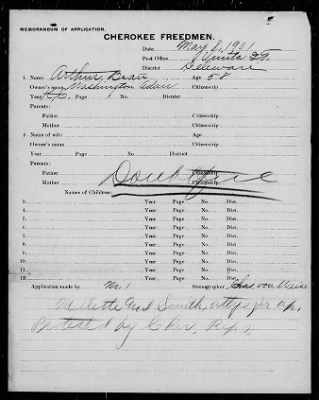 MEMORANDUM OF APPLICATION.
CHEROKEE FREEDMEN.
Date May 8, 1901
Post Office Vinita I.T.
District Delaware
1. Name Arthur, Bean Age 58
Owner's name Washington Adair Citizenship
Year Page No. District
Parents:
Father Citizenship
Mother Citizenship
2. Name of wife Age
Owner's name Citizenship
Year Page No. District
Parents:
Father Citizenship
Mother Citizenship
Doubtful
Names of Children:
3. Year Page No. Dist.
4. Year Page No. Dist.
5. Year Page No. Dist.
6. Year Page No. Dist.
7. Year Page No. Dist.
8. Year Page No. Dist.
9. Year Page No. Dist.
10. Year Page No. Dist.
11. Year Page No. Dist.
12. Year Page No. Dist.
Application made by No. 1 Stenographer Chas. von Weise
Mellette and Smith, attys for app.
Protested by Cher. Rep.